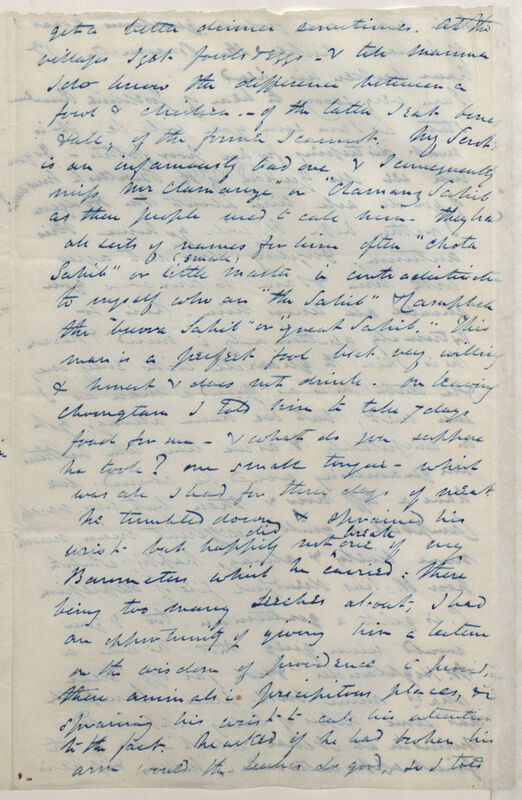 get a better dinner sometimes. At the
villages I get fowls & eggs — & tell mamma
I do know the difference between a
fowl & chicken — of the latter I eat bone
& all, of the former I cannot. My Servt.
is an infamously bad one & I consequently
miss Mr Clamanze" or "Clamanz Sahib"
as these people used to call him — they had
all sorts of names for him often "Chota
Sahib" or (small) little master in contradistinction
to myself who am "the Sahib" & Campbell
the "burra Sahib" or "great Sahib." This
man is a perfect fool but very willing
& honest & does not drink. On leaving
Choongtam I told him to take 7 days
food for me — & what do you suppose
he took? one small tongue — which
was all I had for three days of meat
he tumbled down & sprained his
wrist but happily did not break one of my
Barometers which he carried: there
being too many leeches about, I had
an opportunity of giving him a lecture
on the wisdom of providence in
these animals in precipitous places, & in
spraining his wrist to call his attention
to the fact. he asked if he had broken his
arm would the leeches do good, so I told